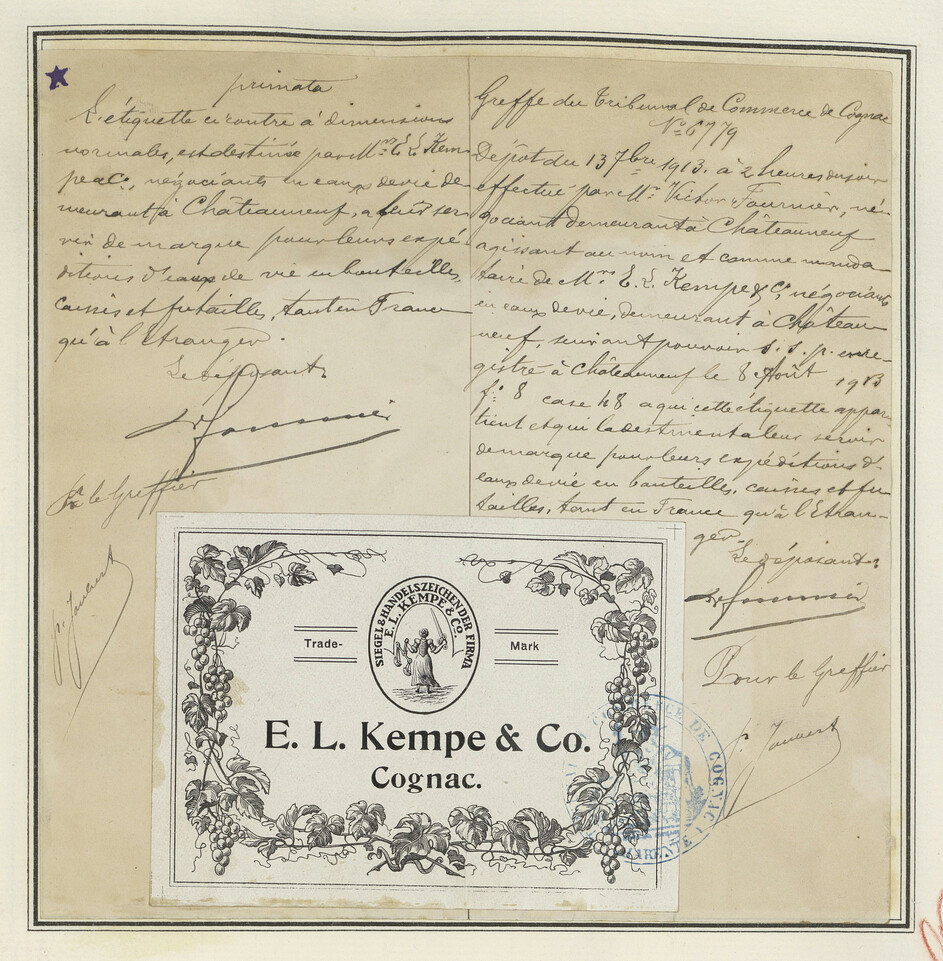 primata
L'étiquette ci contre à dimensions
normales, est destinée par Mrs E. L. Kem-
pe & Co, négociants en eaux de vie de-
meurant à Châteauneuf, à leur ser-
vir de marque pour leurs expé-
ditions d'eaux de vie en bouteilles,
caisses et futailles, tant en France
qu'à l'Etranger.
Le déposant.
Fournier
Pr le Greffier
p. Joubert
Greffe du Tribunal de Commerce de Cognac
No 6779
Dépôt du 13 7bre 1913. à 2 heures du soir
effectué par Mr Victor Fournier, né-
gociant demeurant à Châteauneuf
agissant au nom et comme manda-
taire de Mrs E. L. Kempe & Co, négociants
en eaux de vie, demeurant à Château-
neuf, suivant pouvoir s. s. p. enre-
gistré à Châteauneuf le 8 Août 1913
fo 8 case 48 a qui cette étiquette appar-
tient et qui la destinent a leur servir
de marque pour leurs expéditions d'
eaux de vie en bouteilles, caisses et fu-
tailles, tant en France qu'à l'Etran-
ger.
Le déposant.
Fournier
Pour le Greffier
p. Joubert
SIEGEL & HANDELSZEICHEN DER FIRMA
E. L. KEMPE & Co.
Trade- Mark
E. L. Kempe & Co.
Cognac.
COMMERCE DE COGNAC
CHARENTE